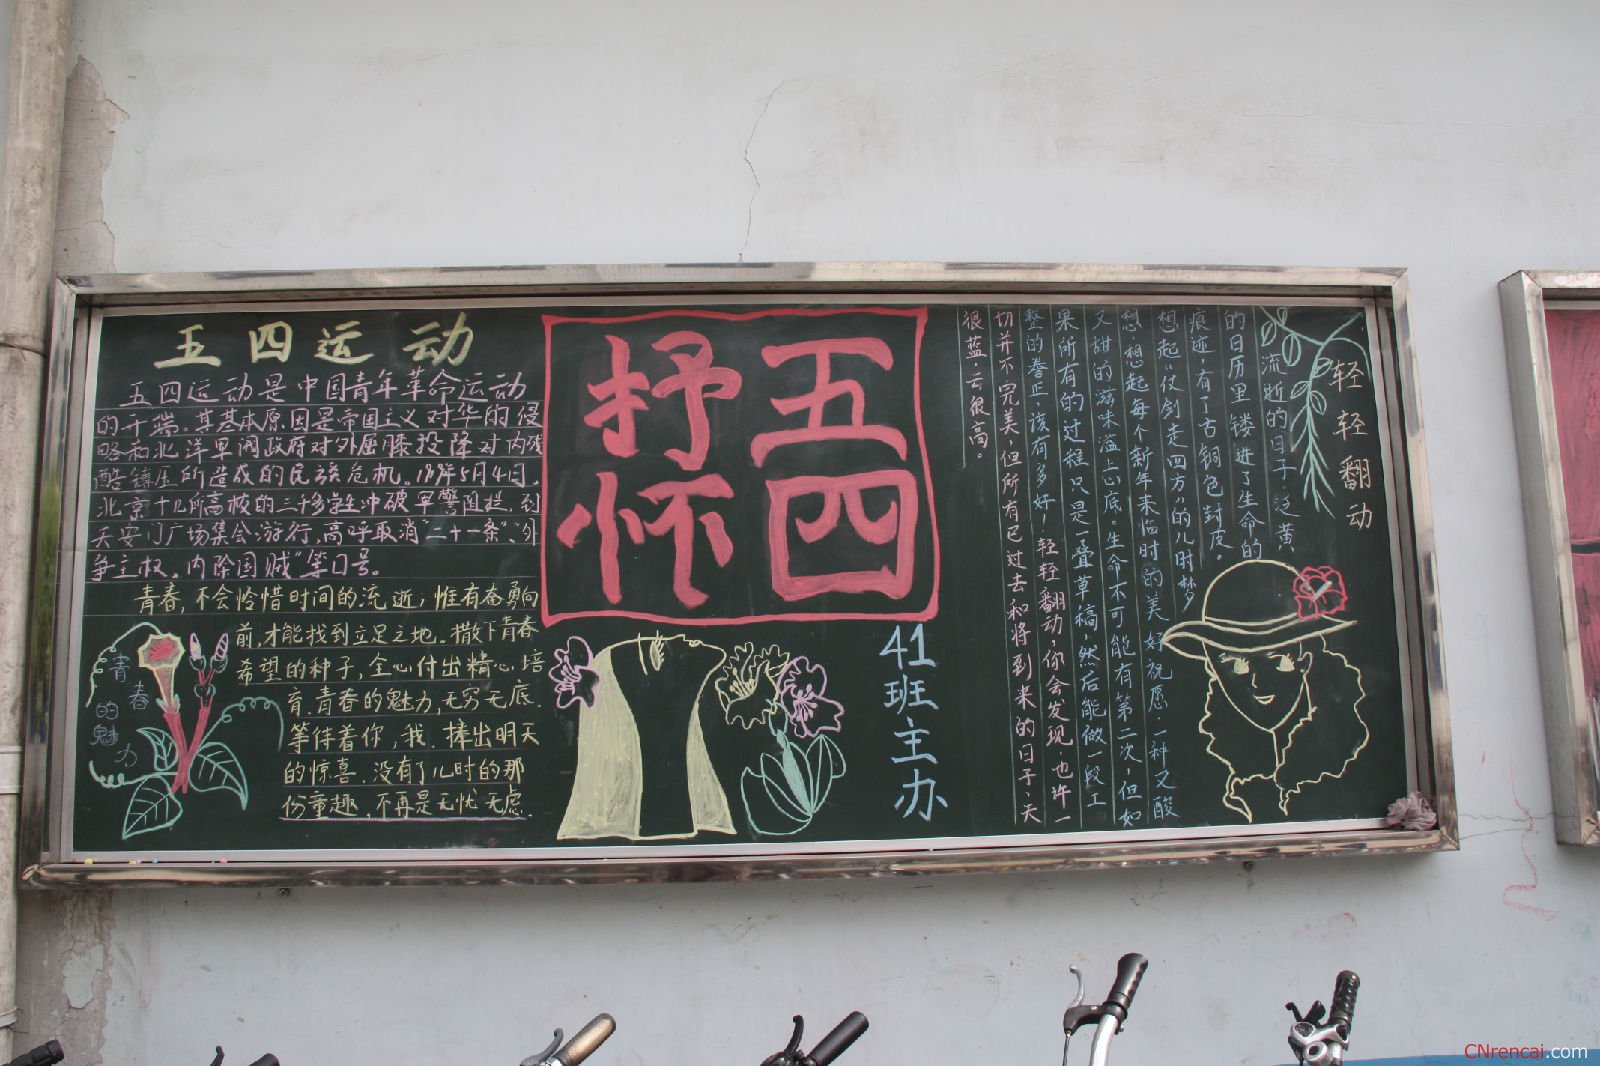 五四运动
五四运动是中国青年革命运动
的开端。其基本原因是帝国主义对华的侵
略和北洋军阀政府对外屈膝投降对内残
酷镇压所造成的民族危机。1919年5月4日,
北京十几所高校的三千多学生冲破军警阻挠,到
天安门广场集会、游行,高呼取消“二十一条”、“外
争主权,内除国贼”等口号。
青春,不会怜惜时间的流逝,惟有奋勇向
前,才能找到立足之地。撒下青春
希望的种子,全心付出精心培
育,青春的魅力,无穷无底.
等待着你,我.捧出明天
的惊喜.没有了儿时的那
份童趣,不再是无忧无虑.
青春
的魅力
五四
抒怀
41班主办
轻轻翻动
流逝的日子,泛黄
的日历里镂进了生命的
痕迹,有了古铜色封皮。
想起“仗剑走四方”的儿时梦
想,想起每个新年来临时的美好祝愿.一种又酸
又甜的滋味溢上心底。生命不可能有第二次,但如
果所有的过程只是一叠草稿,然后能做一段工
整的誊正,该有多好,轻轻翻动,你会发现,也许一
切并不完美,但所有已过去和将到来的日子,天
很蓝,云很高。
CNrencai.com